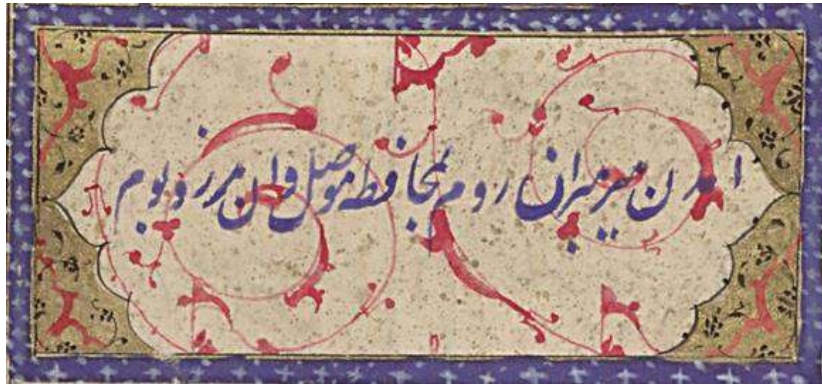 امدن میرمیران روم بمحافظه موصل وان مرز و بوم